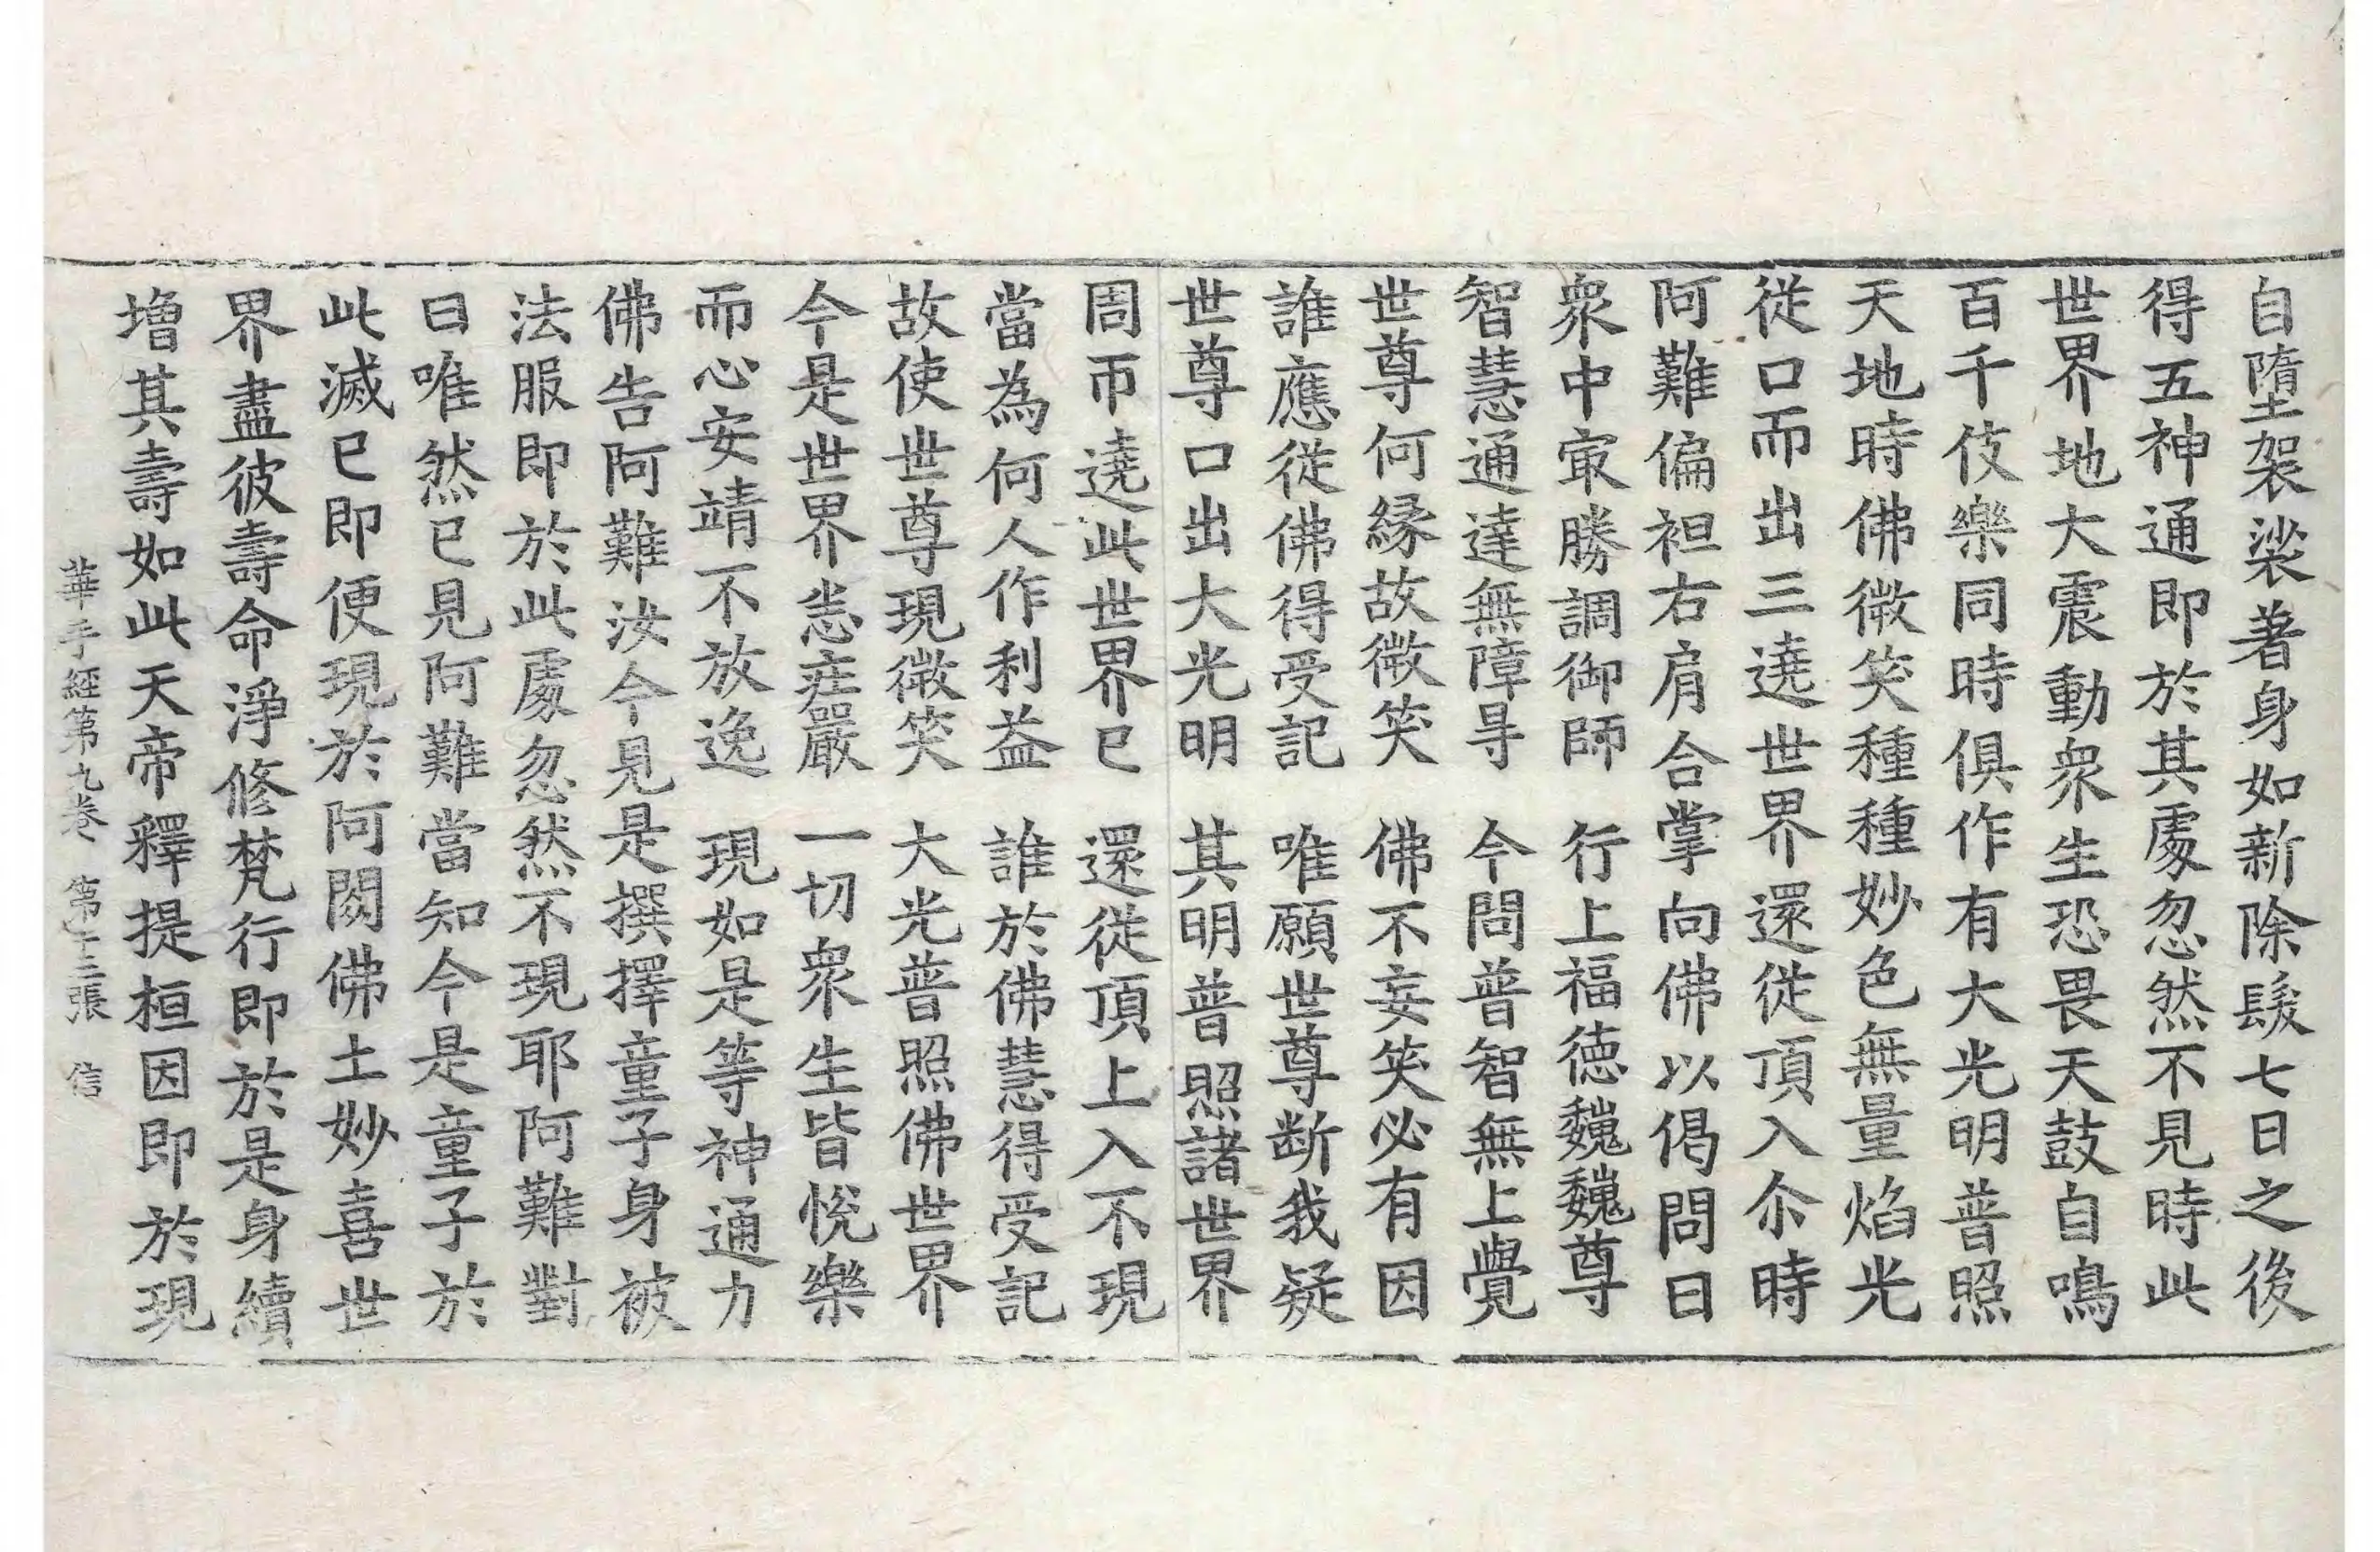 自墮袈裟著身如新除髮七日之後
得五神通即於其處忽然不見時此
世界地大震動衆生恐畏天鼓自鳴
百千伎樂同時俱作有大光明普照
天地時佛微笑種種妙色無量焰光
從口而出三遶世界還從頂入尒時
阿難偏袒右肩合掌向佛以偈問曰
衆中㝡勝調御師　行上福德巍巍尊
智慧通達無障㝵　今問普智無上覺
世尊何緣故微笑　佛不妄笑必有因
誰應從佛得受記　唯願世尊断我疑
世尊口出大光明　其明普照諸世界
周帀遶此世界已　還從頂上入不現
當為何人作利益　誰於佛慧得受記
故使世尊現微笑　大光普照佛世界
今是世界悉㽵嚴　一切衆生皆悅樂
而心安靖不放逸　現如是等神通力
佛告阿難汝今見是撰擇童子身被
法服即於此處忽然不現耶阿難對
曰唯然已見阿難當知今是童子於
此滅已即便現於阿閦佛土妙喜世
界盡彼壽命淨修梵行即於是身續
增其壽如此天帝釋提桓因即於現
華手經第九卷　第十三張　信